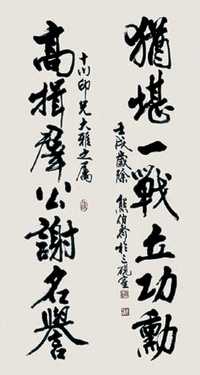 猶堪一戰立功勳
壬戌歲除 熊伯齊於三硯室
十川印兄大雅之屬
高揖群公謝名譽